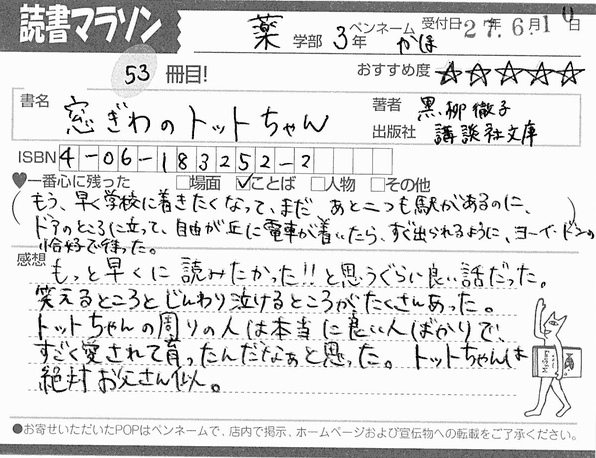 読書マラソン
薬 学部 3年 ペンネーム かほ 受付日 27年 6月 10日
53 冊目! おすすめ度 ☆☆☆☆☆
書名 窓ぎわのトットちゃん
著者 黒柳徹子
出版社 講談社文庫
ISBN 4-06-183252-2
♥一番心に残った □場面 ☑ことば □人物 □その他
(もう、早く学校に着きたくなって、まだ、あと二つも駅があるのに、
ドアのところに立って、自由が丘に電車が着いたら、すぐ出られるように、ヨーイ・ドンの
恰好で待った。)
感想 もっと早くに読みたかった!!と思うぐらい良い話だった。
笑えるところとじんわり泣けるところがたくさんあった。
トットちゃんの周りの人は本当に良い人ばかりで、
すごく愛されて育ったんだなぁと思った。トットちゃんは
絶対お父さん似。
●お寄せいただいたPOPはペンネームで、店内で掲示、ホームページおよび宣伝物への転載をご了承ください。